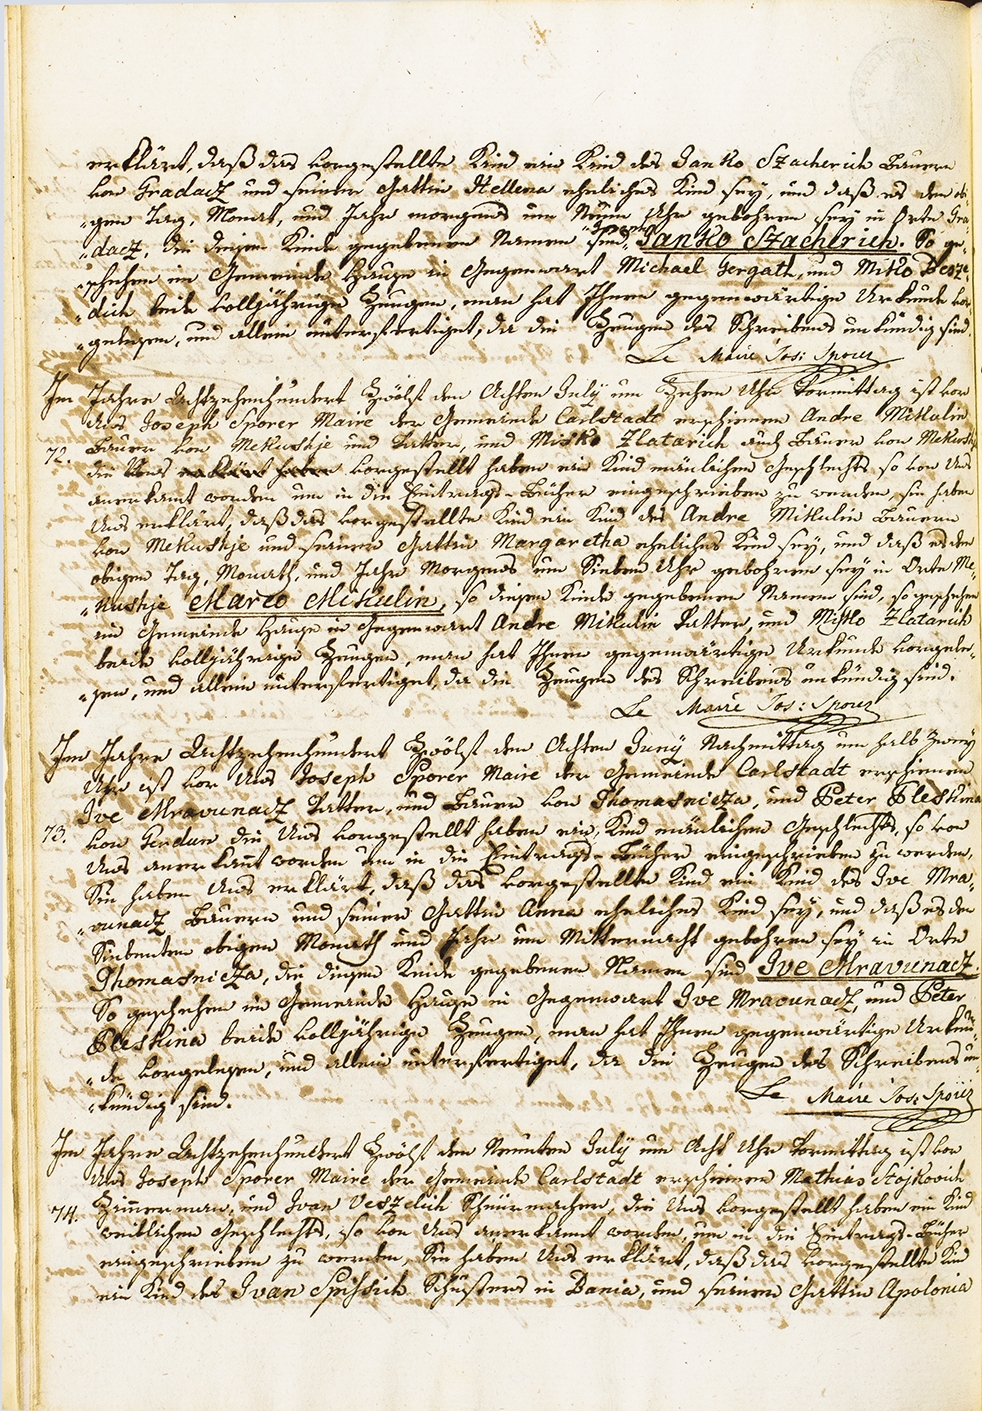 erklärt, daß das vorgestellte Kind ein Kind des Janko Szacherich Bauern
von Gradacz und seiner Gattin Hellena eheliches Kind sey, und daß es den obi-
„gen Tag, Monat, und Jahr morgens um Neun Uhr gebohren sey in Orte Gra-
„dacz, die diesen Kinde gegebenen Namen sind Janko Szacherich. So ge-
„schehen im Gemeinde Hause in Gegenwart Michael Gergath, und Mitko
„dich beide volljährige Zeugen, man hat Ihnen gegenwärtige Urkunde vor-
„gelesen, und allein unterfertiget, da die Zeugen des Schreibens unkündig sind.
Le Maire Jos: Sporer
Im Jahre Achtzehenhundert Zwölf den Achten July um Zehen Uhr Vormittag ist vor
Uns Joseph Sporer Maire der Gemeinde Carlstadt erschienen Andre Mikulin
72. Bauer von Mekushje und Vatter, und Misko Zlatarich auch Bauer von Mekush
die Uns vorgestellt haben ein Kind mänlichen Geschlechts so von Uns
anerkant worden um in die Eintrags-Bücher eingeschrieben zu werden, sie haben
Uns erklärt, daß das vorgestellte Kind ein Kind des Andre Mikulin Bauern
von Mekushje und seiner Gattin Margaretha eheliches Kind sey, und daß es den
obigen Tag, Monath, und Jahr Morgens um Sieben Uhr gebohren sey in Orte Me-
„kushje Marco Mikulin, so diesen Kinde gegebenen Namen sind, so geschehen
im Gemeinde Hause in Gegenwart Andre Mikulin Vatter, und Mitko Zlatarich
beide volljährige Zeugen, man hat Ihnen gegenwärtige Urkunde vorgele-
„sen, und allein unterfertiget, da die Zeugen des Schreibens unkündig sind.
Le Maire Jos: Sporer
Im Jahre Achtzehenhundert Zwölf den Achten Juny Nachmittag um halb Zwey
Uhr ist vor Uns Joseph Sporer Maire der Gemeinde Carlstadt erschienen
Ive Mravunacz Vatter, und Bauer von Thomasnicza, und Peter Pleskina
73. von die Uns vorgestellt haben ein Kind mänlichen Geschlechts, so von
Uns anerkant worden um in die Eintrags-Bücher eingeschrieben zu werden,
Sie haben Uns erklärt, daß das vorgestellte Kind ein Kind des Ive Mra-
„vunacz Bauern und seiner Gattin Anna eheliches Kind sey, und daß es den
Siebenten obigen Monath und Jahr um Mitternacht gebohren sey in Orte
Thomasnicza, die diesen Kinde gegebenen Namen sind Ive Mravunacz.
So geschehen im Gemeinde Hause in Gegenwart Ive Mravunacz, und Peter
Pleskina beide volljährige Zeugen, man hat Ihnen gegenwärtige Urkun-
„de vorgelesen, und allein unterfertiget, da die Zeugen des Schreibens un-
„kündig sind.
Le Maire Jos: Sporer
Im Jahre Achtzehenhundert Zwölf den Neunten July um Acht Uhr Vormittag ist vor
Uns Joseph Sporer Maire der Gemeinde Carlstadt erschienen Mathias Stojkovich
74. Zimmerman, und Ivan Veszelich Schnürmacher, die Uns vorgestellt haben ein Kind
weiblichen Geschlechts, so von Uns anerkant worden, um in die Eintrags-Bücher
eingeschrieben zu werden, Sie haben Uns erklärt, daß das vorgestellte Kind
ein Kind des Ivan Spissich Schusters in Bania, und seiner Gattin Apolonia